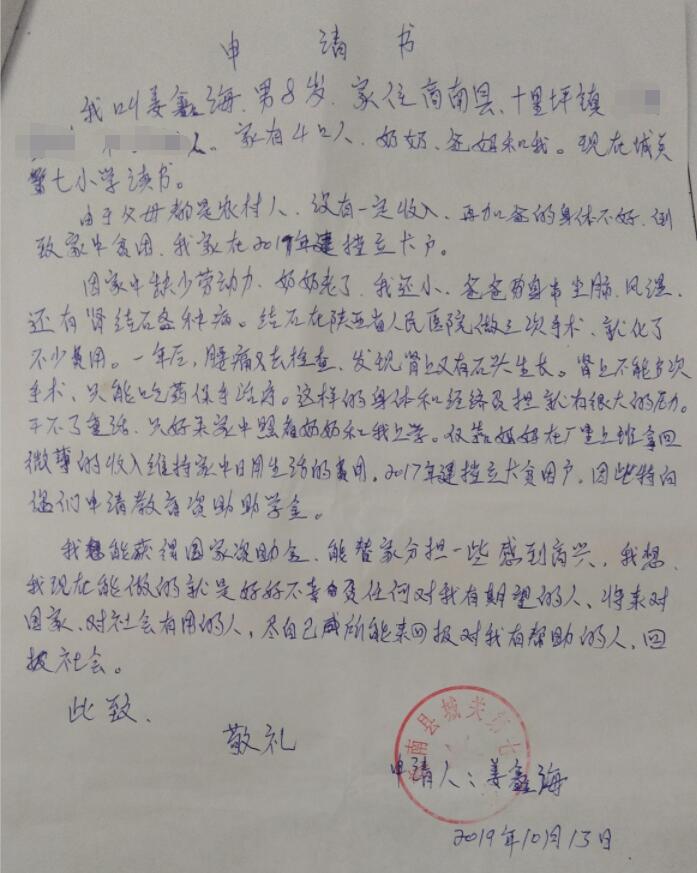 申请书
我叫姜鑫海,男8岁,家住商南县、十里坪镇
人。家有4口人、奶奶、爸妈和我。现在城关
第七小学读书。
由于父母都是农村人、没有一定收入、再加爸的身体不好,倒
致家中贫困,我家在2017年建挡立卡户。
因家中缺少劳动力、奶奶老了、我还小、爸爸的身
还有肾结石各种病。结石在陕西省人民医院做三次手术、就化了
不少费用。一年后,腰痛又去检查、发现肾上又有石头生长。肾上不能多次
手术、只能吃药保手治疗。这样的身体和经济负担就有很大的压力。
干不了重活、只好来家中照看奶奶和我上学。仅靠妈妈在厂里上班拿回
微薄的收入维持家中日用生活的费用,2017年建挡立卡贫困户,因此特向
你们申请教育资助助学金。
我想能获得国家资助金、能替家分担一些感到高兴,我想、
我现在能做的就是好好不辜负任何对我有期望的人、将来对
国家、对社会有用的人,尽自己所能来回报对我有帮助的人,回
报社会。
此致、
敬礼
南县城关第七
申请人:姜鑫海
2019年10月13日